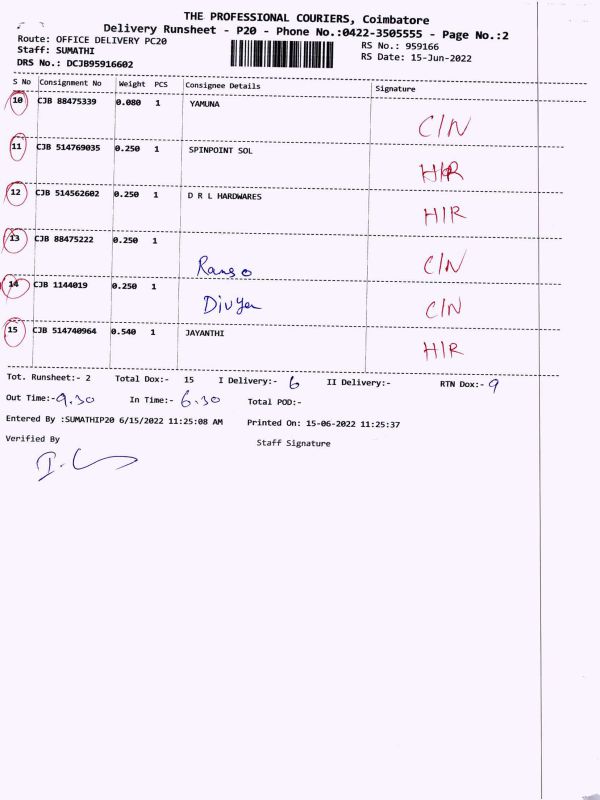 THE PROFESSIONAL COURIERS, Coimbatore
Delivery Runsheet - P20 - Phone No.:0422-3505555 - Page No.:2
Route: OFFICE DELIVERY PC20 RS No.: 959166
Staff: SUMATHI RS Date: 15-Jun-2022
DRS No.: DCJB95916602
S No Consignment No Weight PCS Consignee Details Signature
10 CJB 88475339 0.080 1 YAMUNA C/N
11 CJB 514769035 0.250 1 SPINPOINT SOL H/R
12 CJB 514562602 0.250 1 D R L HARDWARES H/R
13 CJB 88475222 0.250 1 C/N
14 CJB 1144019 0.250 1 Divya C/N
15 CJB 514740964 0.540 1 JAYANTHI H/R
Tot. Runsheet:- 2 Total Dox:- 15 I Delivery:- 6 II Delivery:- RTN Dox:- 9
Out Time:- 9.30 In Time:- 6.30 Total POD:-
Entered By :SUMATHIP20 6/15/2022 11:25:08 AM Printed On: 15-06-2022 11:25:37
Verified By Staff Signature